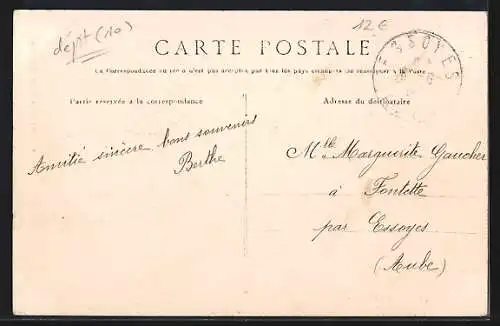 dépt (10)
12 €
CARTE POSTALE
La Correspondance au recto n'est pas acceptée par tous les pays étrangers. Se renseigner à la Poste
ESSOYES
Partie réservée à la correspondance
Adresse du destinataire
Amitié sincère bons souvenirs
Berthe
Mlle Marguerite Gaucher
à
Fontette
par Essoyes
(Aube)